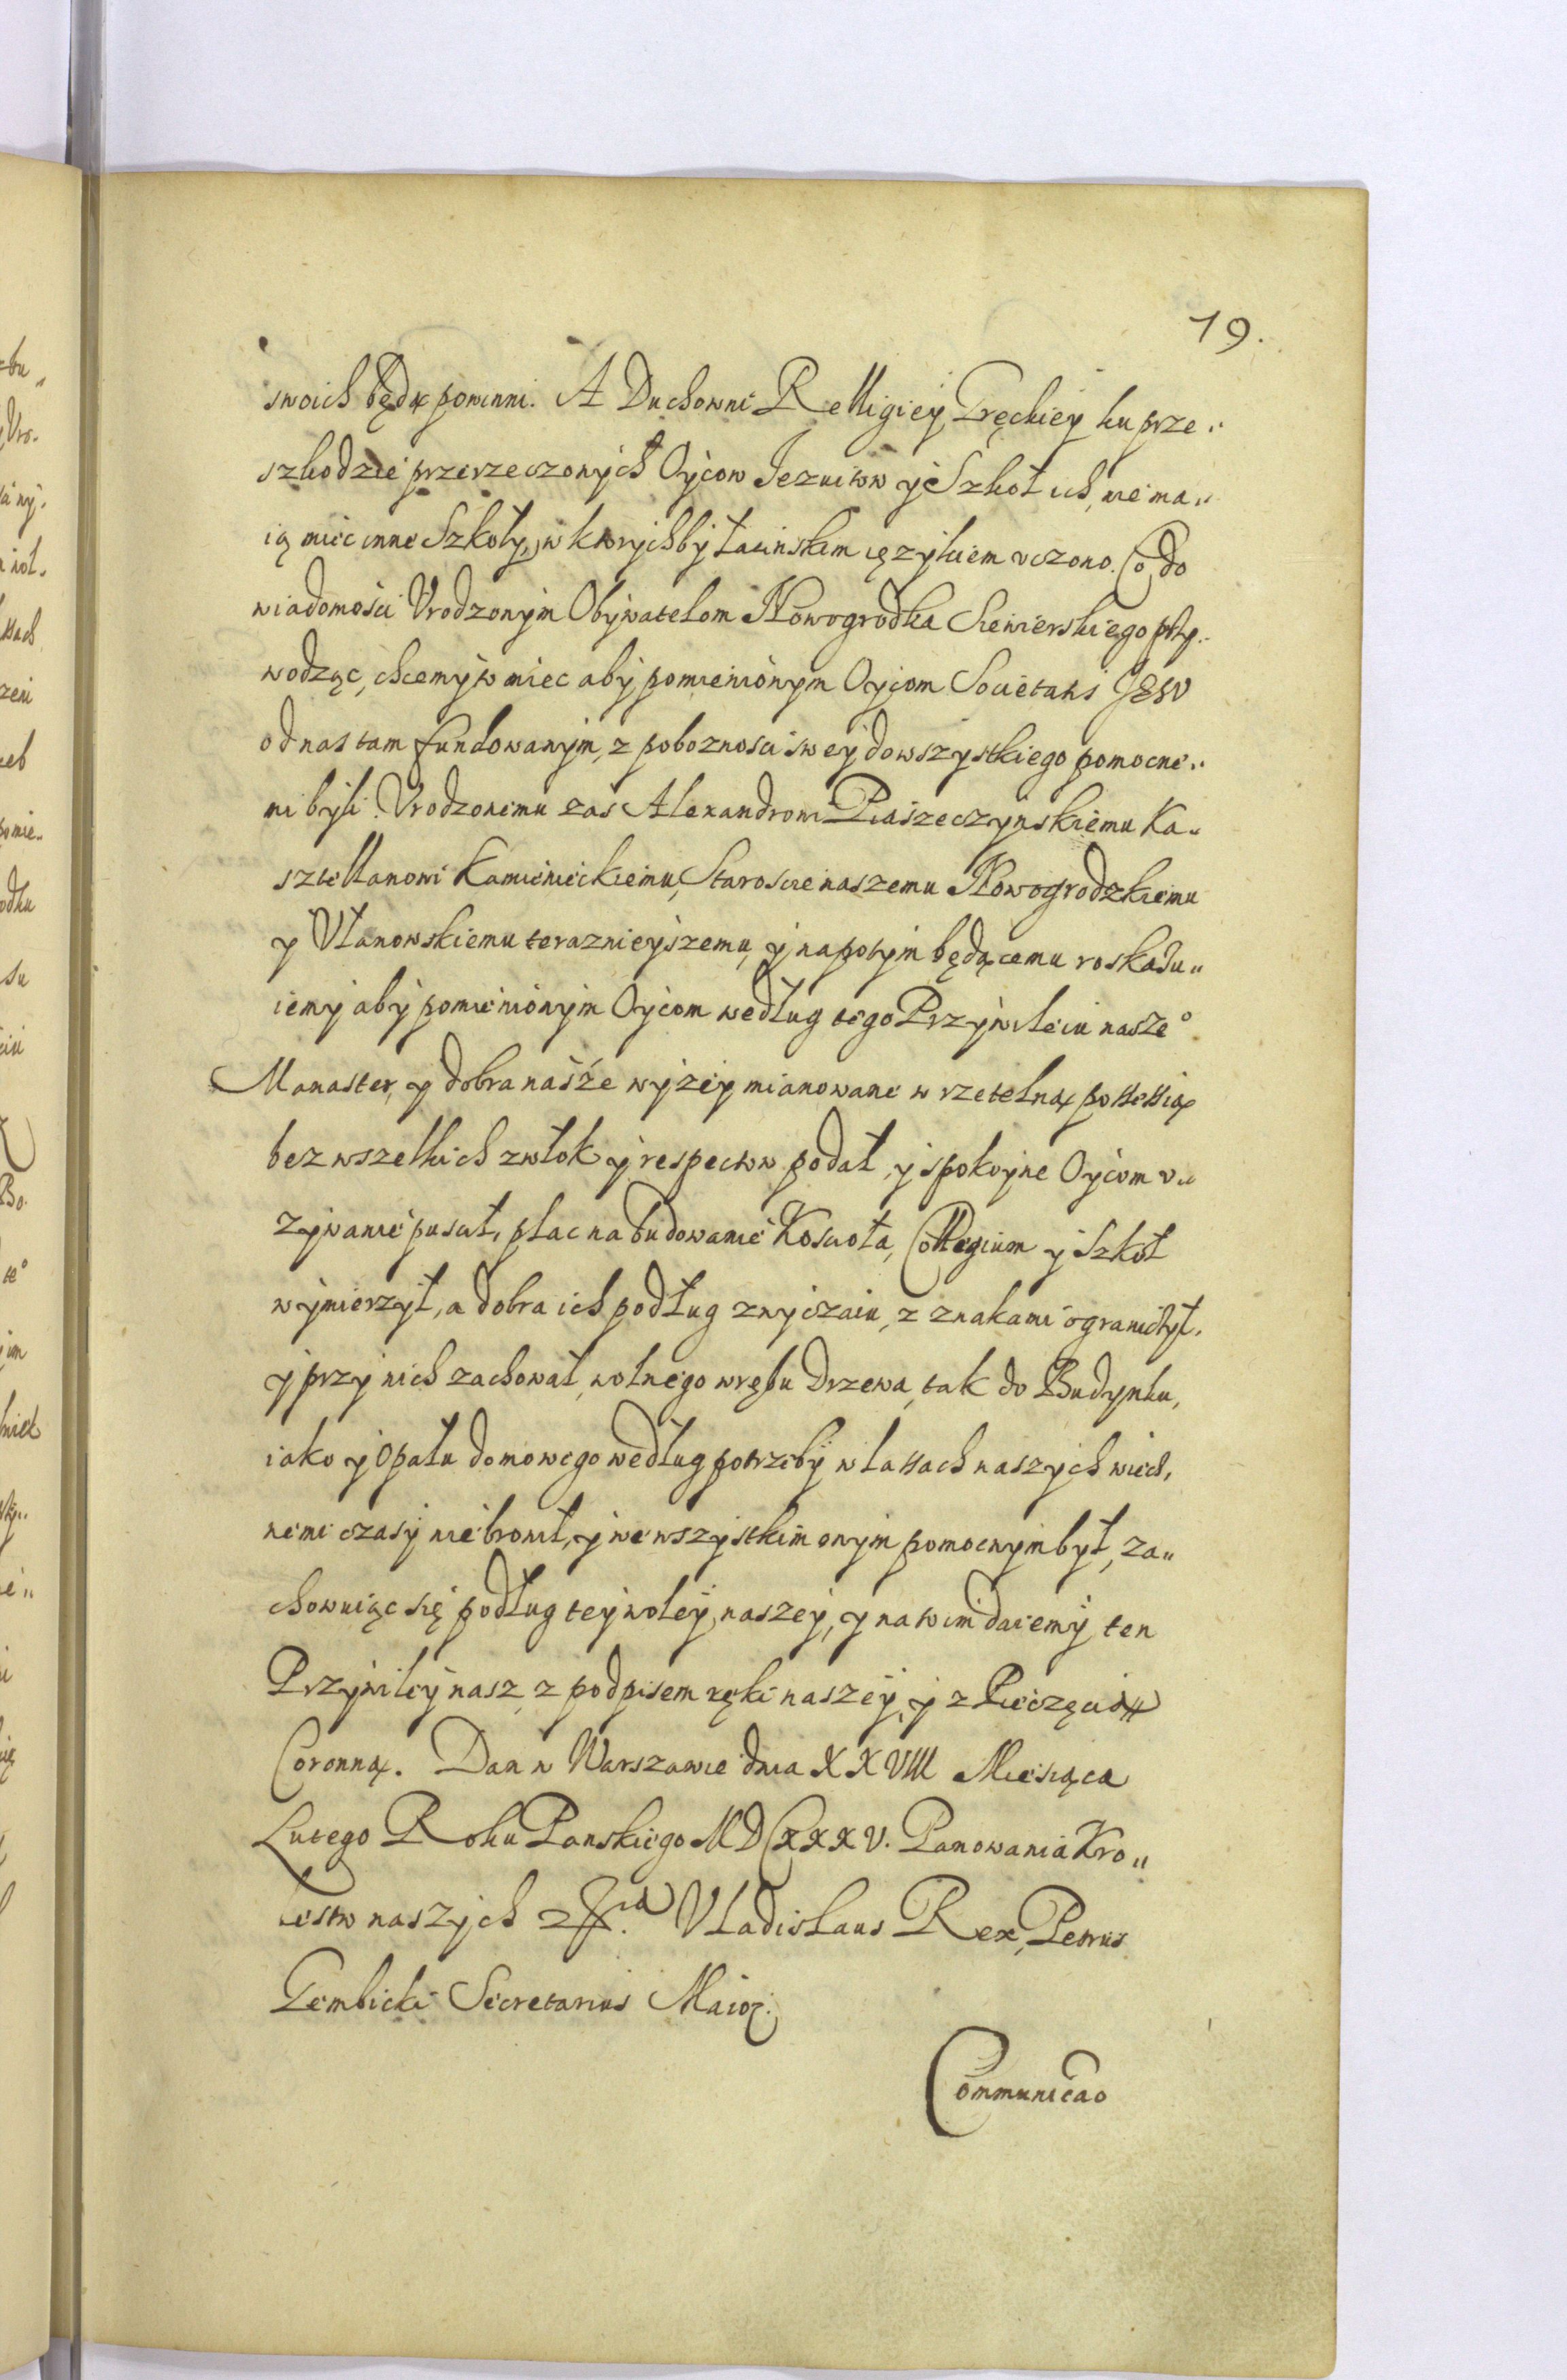 19.
swoich będą powinni. A Duchowni Relligiey Gręckiey ku prze„
szkodzie przerzeczonych Oycow Jezuitow y Szkoł ich, nie ma„
ią mieć inne Szkoły, w ktorychby łacinskim ięzykiem uczono. Co do
wiadomości Urodzonym Obywatelom Nowogrodka Siewierskiego przy„
wodząc, chcemy to mieć aby pomienionym Oycom Societatis JESU
od nas tam fundowanym, z poboznosci swey do wszystkiego pomocne„
mi byli. Urodzonemu zas Alexandrowi Piaszeczynskiemu Ka„
sztellanowi Kamienieckiemu, Staroscie naszemu Nowogrodzkiemu
y Ułanowskiemu teraznieyszemu, y napotym będącemu roskazu„
iemy aby pomienionym Oycom według tego Przywileiu nasze°
Manaster, y dobra nasze wyzey mianowane w rzetelną possessią
bez wszelkich zwłok y respectow podał, y spokoyne Oycom u„
zywanie puscił, plac na budowanie Koscioła, Collegium y Szkoł
wymierzył, a dobra ich podług zwyczaiu, z znakami ograniczył,
y przy nich zachował, wolnego wrębu drzewa, tak do Budynku,
iako y Opału domowego według potrzeby w lassach naszych wiecz,
nemi czasy nie bronił, y we wszystkim onym pomocnym był, za„
chowuiąc się podług tey woley naszey, y na to im daiemy ten
Przywiley nasz z podpisem ręki naszey, y z Pieczęcią
Coronną. Dan w Warszawie dnia XXVIII Miesiąca
Lutego Roku Panskiego MDCXXXV. Panowania Kro„
lestw naszych Vladislaus Rex, Petrus
Gembicki Secretarius Maior.
Communicao